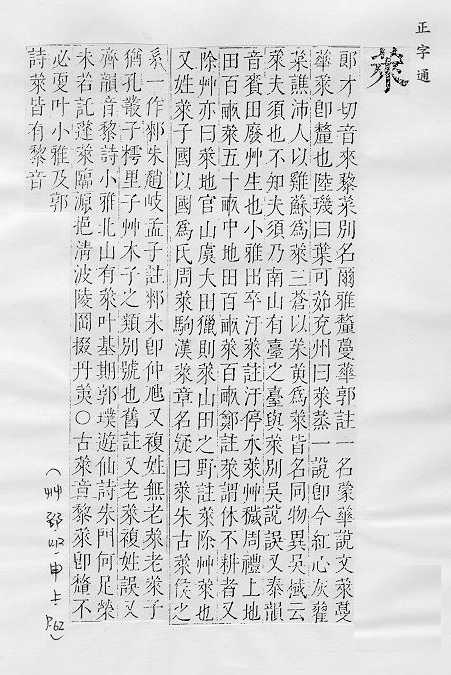 正字通
萊
郎才切音來黎萊別名爾雅釐蔓華郭註一名蒙華說文萊蔓
華萊卽釐也陸璣曰葉可茹兗州曰萊蒸一說卽今紅心灰藋
萊譙沛人以雞蘇爲萊三蒼以茱萸爲萊皆名同物異吳棫云
萊夫須也不知夫須乃南山有臺之臺與萊別吳說誤又泰韻
音賚田廢艸生也小雅田卒汙萊註汙停水萊艸穢周禮上地
田百畝萊五十畝中地田百畝萊百畝鄭註萊謂休不耕者又
除艸亦曰萊地官山虞大田獵則萊山田之野註萊除艸萊也
又姓萊子國以國爲氏周萊駒漢萊章名疑曰萊朱古萊侯之
系一作郲朱趙岐孟子註郲朱卽仲虺又複姓無老萊老萊子
猶孔叢子樗里子艸木子之類別號也舊註又老萊複姓誤又
齊韻音黎詩小雅北山有萊叶基期郭璞遊仙詩朱門何足榮
未若託蓬萊臨源挹清波陵岡掇丹荑○古萊音黎萊卽釐不
必更叶小雅及郭
詩萊皆有黎音
(艸部 申上 P.62)